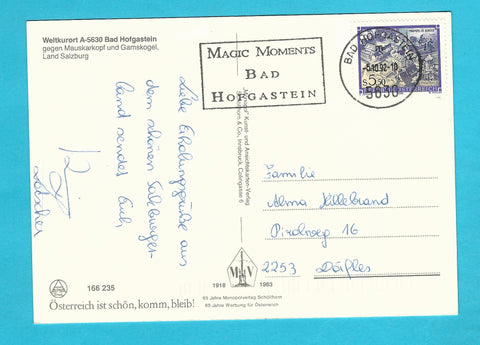 Weltkurort A-5630 Bad Hofgastein
gegen Mauskarkopf und Gamskogel,
Land Salzburg
MAGIC MOMENTS
BAD
HOFGASTEIN
BAD HOFGASTEIN
-6.10.92-18
5630
S 5,50
Liebe Erholungsgrüße aus
dem schönen Salzburger-
land sendet Euch
Familie
Alma Hillebrand
Pirolweg 16
2253 Dörfles
"Monopol" Kunst- und Ansichtskarten-Verlag
& Co., Innsbruck, Colingasse 6
166 235
Österreich ist schön, komm, bleib!
M V
1918 1983
65 Jahre Monopolverlag Schöllhorn
65 Jahre Werbung für Österreich